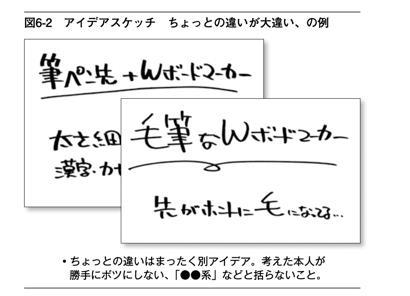 図6-2　アイデアスケッチ　ちょっとの違いが大違い、の例
筆ペン先+Wボードマーカー
太さ細
漢字・カナ
毛筆なWボードマーカー
先がホントに毛になってる…
・ちょっとの違いはまったく別アイデア。考えた本人が
勝手にボツにしない、「●●系」などと括らないこと。